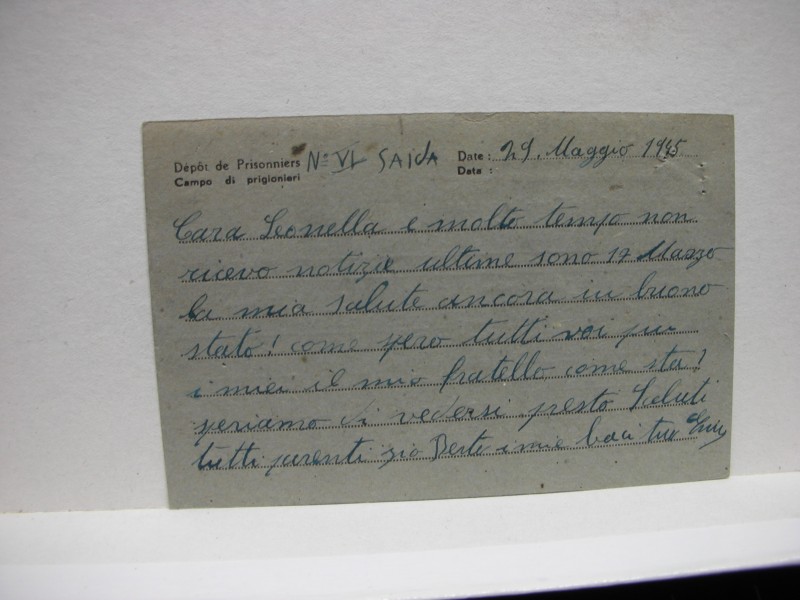 Dépôt de Prisonniers Nº VI SAIDA Date : 29. Maggio 1945
Campo di prigionieri Data :
Cara Leonella e molto tempo non
ricevo notizie ultime sono 17 Marzo
la mia salute ancora in buono
stato! come spero tutti voi piu
i miei il mio fratello come sta?
speriamo di vederci presto Saluti
tutti parenti zio Berto i mie baci tuo